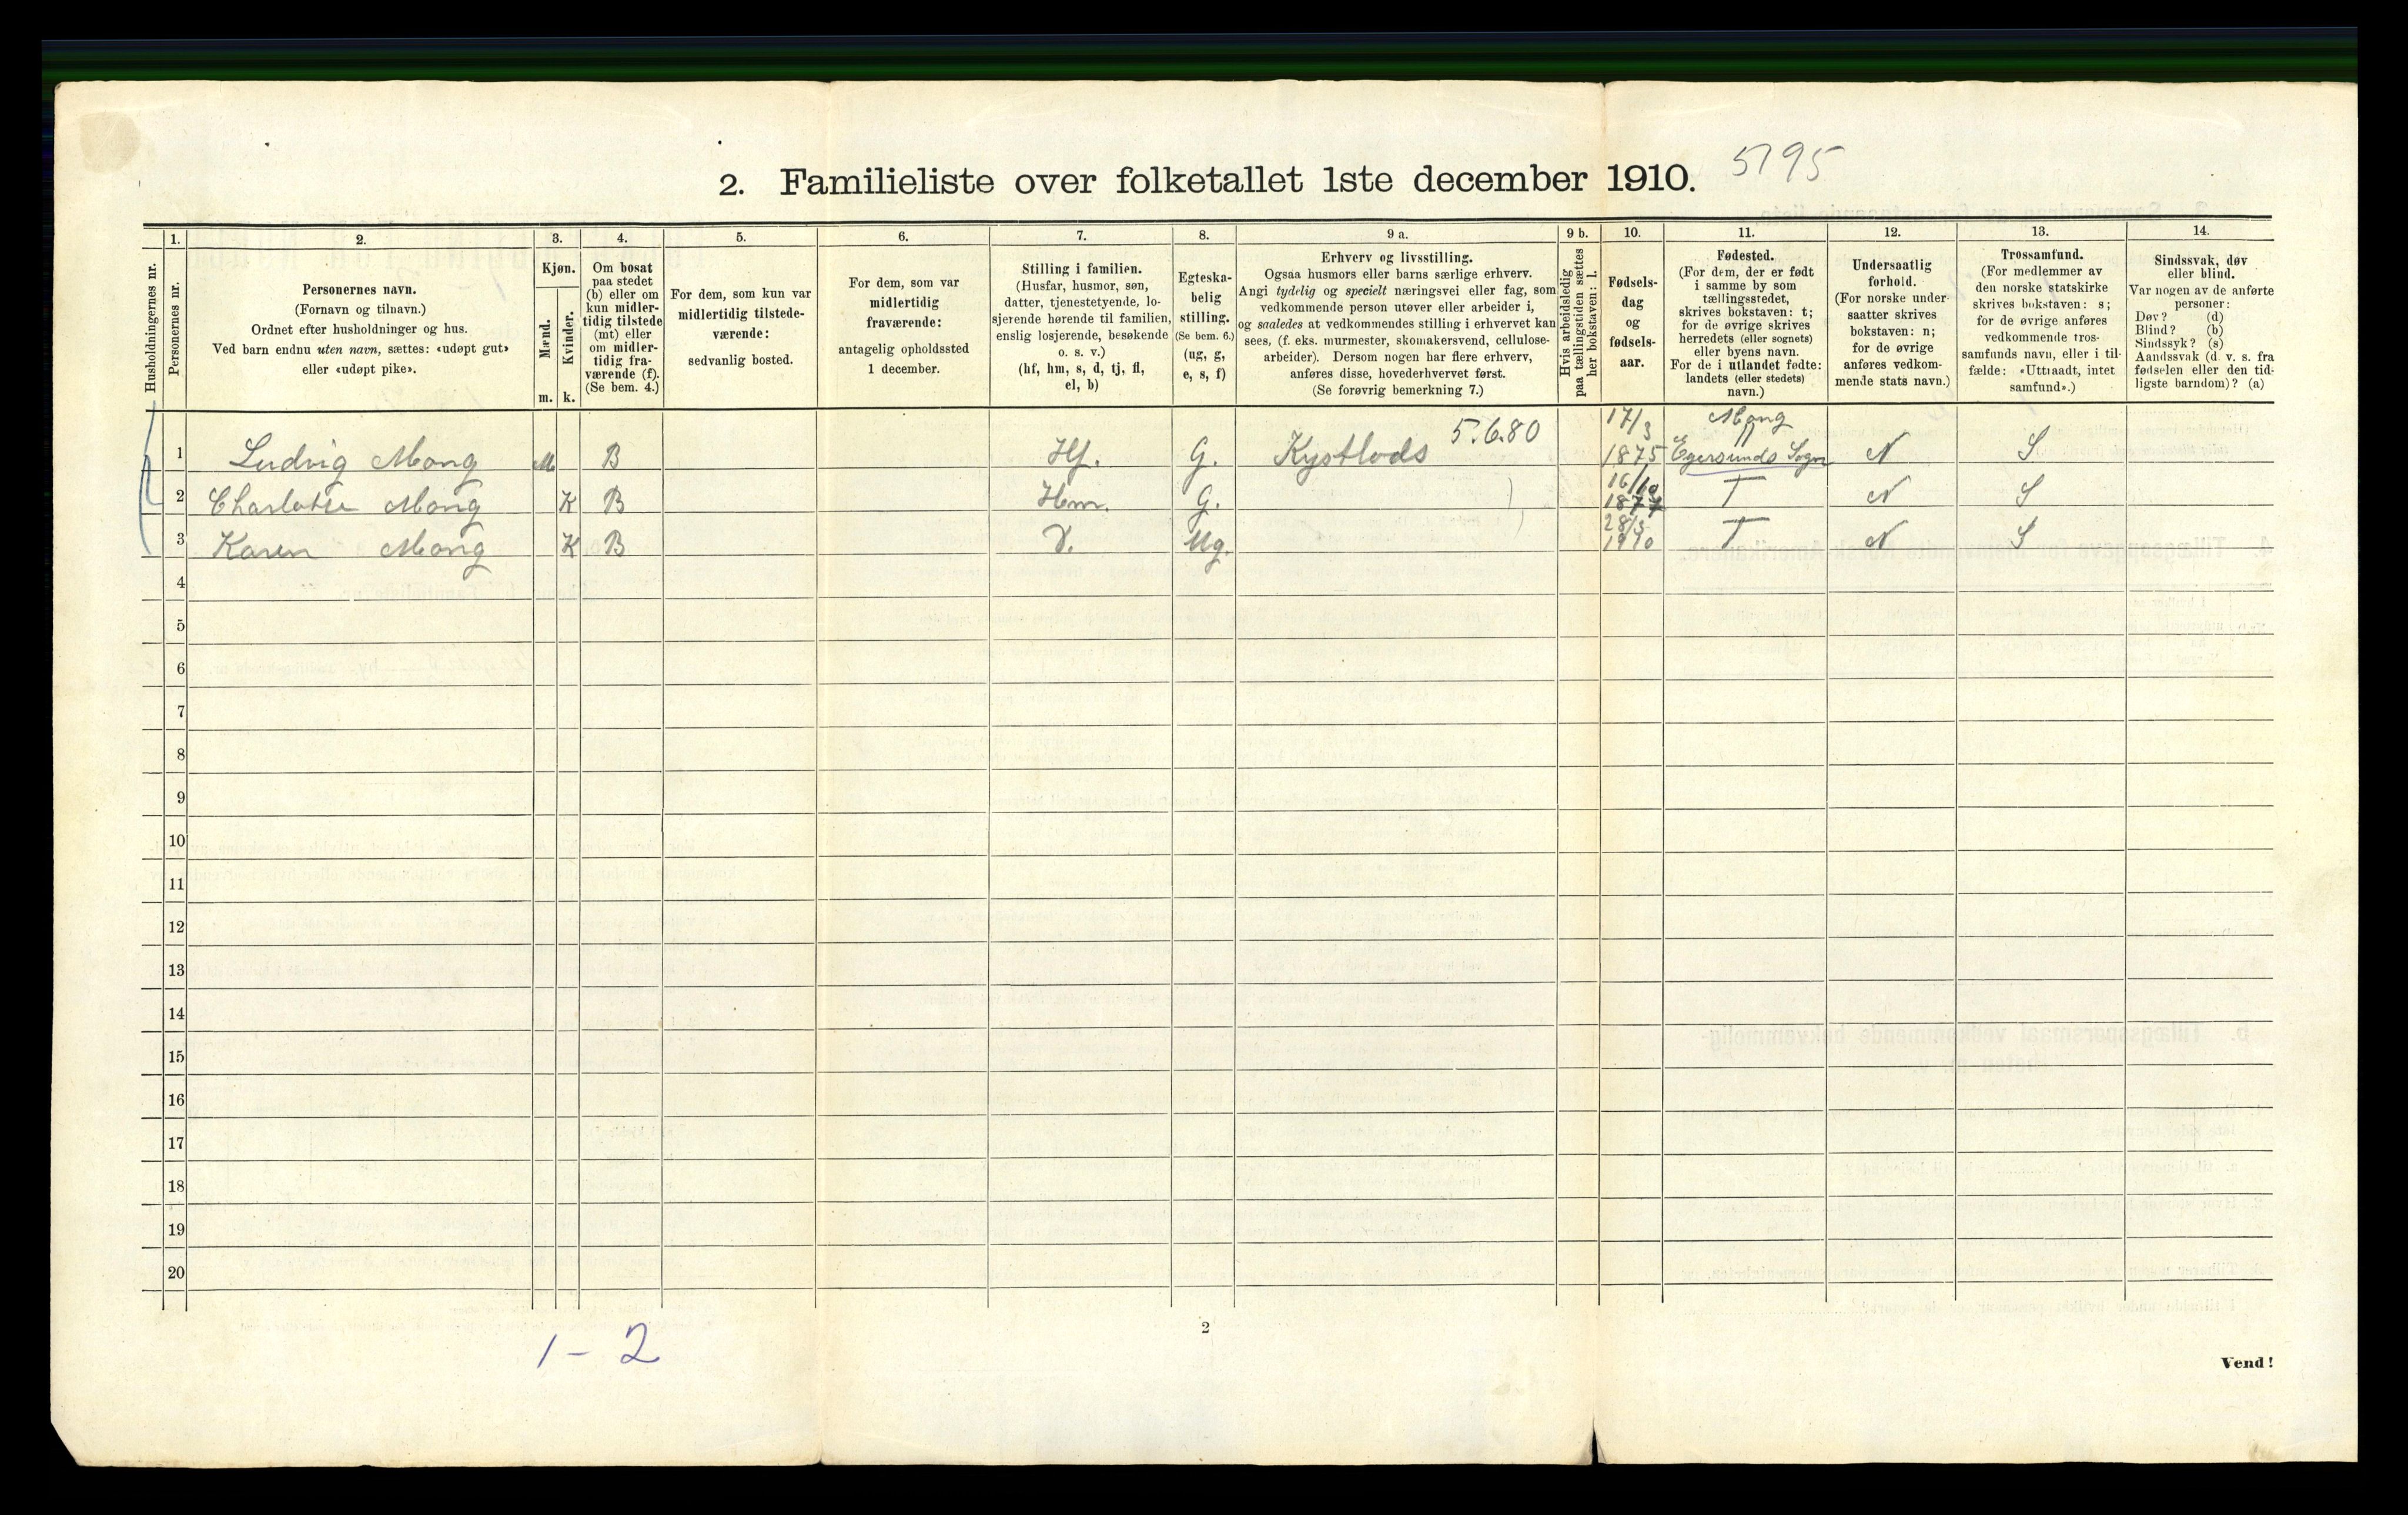 2. Familieliste over folketallet 1ste december 1910. 5795
Husholdningernes nr.
1.
Personernes nr.
2.
Personernes navn.
(Fornavn og tilnavn.)
Ordnet efter husholdninger og hus.
Ved barn endnu uten navn, sættes: «udøpt gut»
eller «udøpt pike».
3.
Kjøn.
Mænd.
Kvinder.
m. k.
4.
Om bosat
paa stedet
(b) eller om
kun midler-
tidig tilstede
(mt) eller
om midler-
tidig fra-
værende (f).
(Se bem. 4.)
5.
For dem, som kun var
midlertidig tilstede-
værende:
sedvanlig bosted.
6.
For dem, som var
midlertidig
fraværende:
antagelig opholdssted
1 december.
7.
Stilling i familien.
(Husfar, husmor, søn,
datter, tjenestetyende, lo-
sjerende hørende til familien,
enslig losjerende, besøkende
o. s. v.)
(hf, hm, s, d, tj, fl,
el, b)
8.
Egteska-
belig
stilling.
(Se bem. 6.)
(ug, g,
e, s, f)
9 a.
Erhverv og livsstilling.
Ogsaa husmors eller barns særlige erhverv.
Angi tydelig og specielt næringsvei eller fag, som
vedkommende person utøver eller arbeider i,
og saaledes at vedkommendes stilling i erhvervet kan
sees, (f. eks. murmester, skomakersvend, cellulose-
arbeider). Dersom nogen har flere erhverv,
anføres disse, hovederhvervet først.
(Se forøvrig bemerkning 7.)
9 b.
Hvis arbeidsledig
paa tællingstiden sættes
her bokstaven: l.
10.
Fødsels-
dag
og
fødsels-
aar.
11.
Fødested.
(For dem, der er født
i samme by som
tællingsstedet,
skrives bokstaven: t;
for de øvrige skrives
herredets (eller sognets)
eller byens navn.
For de i utlandet fødte:
landets (eller stedets)
navn.)
12.
Undersaatlig
forhold.
(For norske under-
saatter skrives
bokstaven: n;
for de øvrige
anføres vedkom-
mende stats navn.)
13.
Trossamfund.
(For medlemmer av
den norske statskirke
skrives bokstaven: s;
for de øvrige anføres
vedkommende tros-
samfunds navn, eller i til-
fælde: «Uttraadt, intet
samfund».)
14.
Sindssvak, døv
eller blind.
Var nogen av de anførte
personer:
Døv? (d)
Blind? (b)
Sindssyk? (s)
Aandssvak (d. v. s. fra
fødselen eller den tid-
ligste barndom)? (a)
5.6.80 17/3 Mong
1 Ludvig Mong M B Hf. G. Kystlods 1875 Egersunds Sogn N S
16/10
2 Charlotte Mong K B Hm. G. 1877 T N S
28/5
3 Karen Mong K B D. Ug. 1910 T N S
4
5
6
7
8
9
10
11
12
13
14
15
16
17
18
19
20
1 - 2
2
Vend!